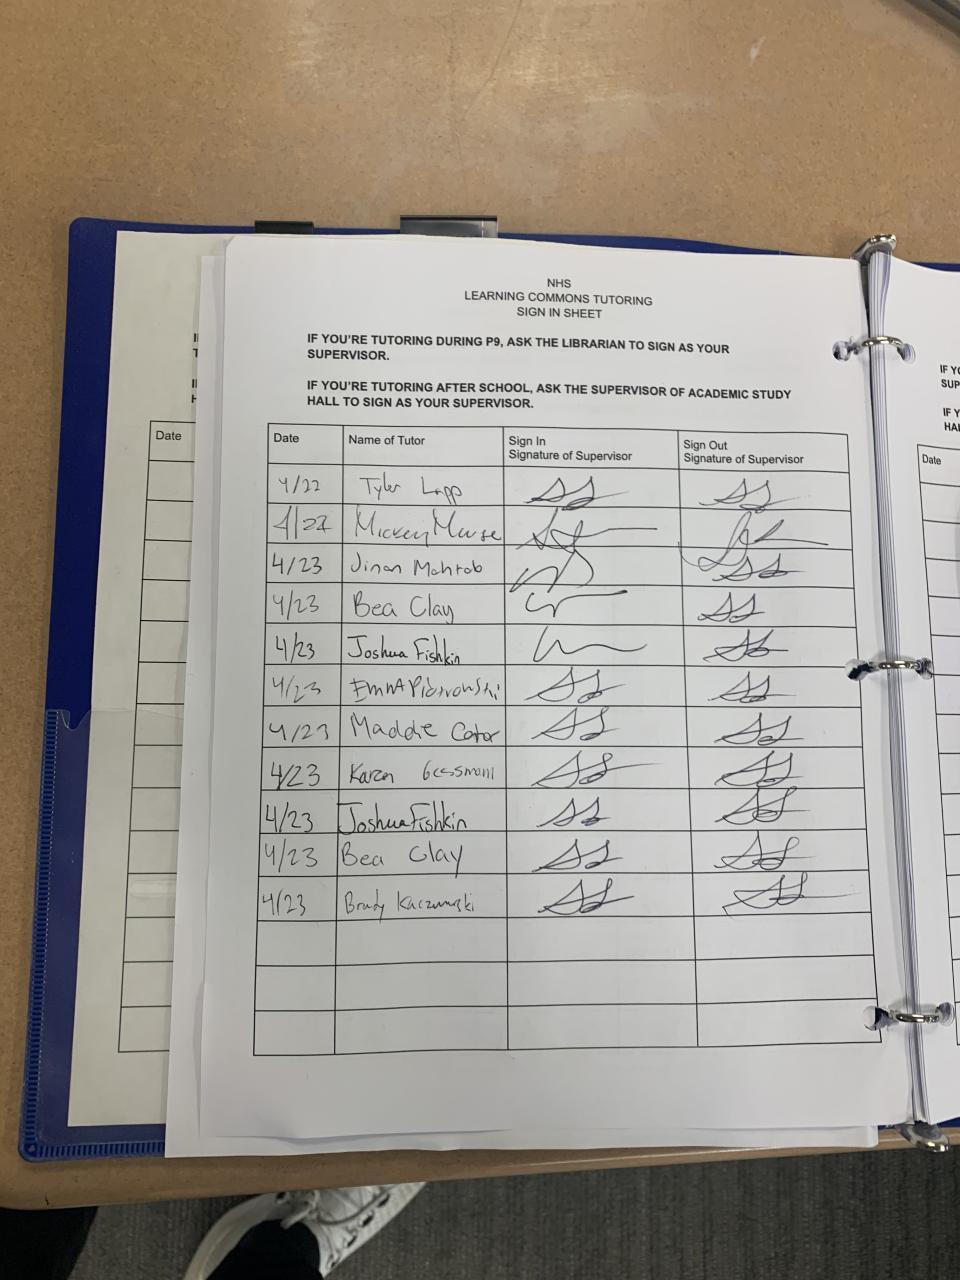 NHS
LEARNING COMMONS TUTORING
SIGN IN SHEET
IF YOU'RE TUTORING DURING P9, ASK THE LIBRARIAN TO SIGN AS YOUR
SUPERVISOR.
IF YOU'RE TUTORING AFTER SCHOOL, ASK THE SUPERVISOR OF ACADEMIC STUDY
HALL TO SIGN AS YOUR SUPERVISOR.
Date
Date Name of Tutor Sign In Signature of Supervisor Sign Out Signature of Supervisor
4/22 Tyler Lapp
4/22 Mickey Mouse
4/23 Jinan Mahtab
4/23 Bea Clay
4/23 Joshua Fishkin
4/23 Emma Piotrowski
4/23 Maddie Cator
4/23 Karen
4/23 Joshua Fishkin
4/23 Bea Clay
4/23 Brady Kaczmarski
IF YO
SUP
IF Y
HAL
Date